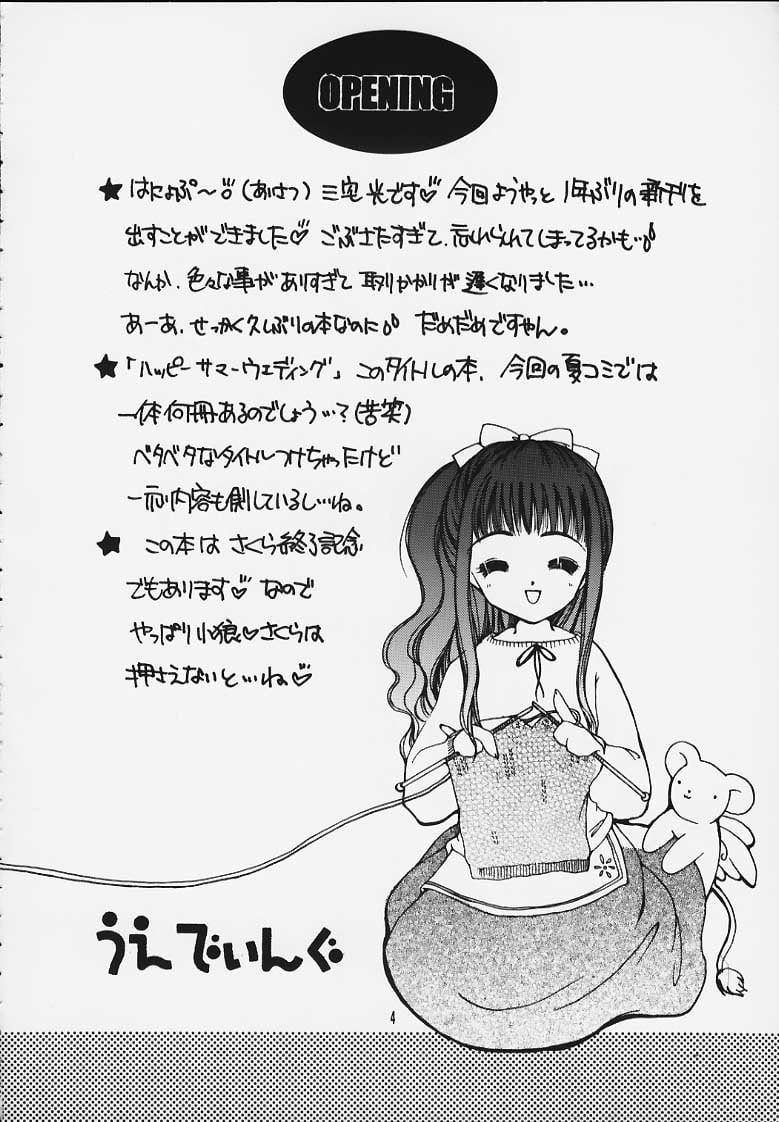 OPENING
★ はにょぷ〜♡(あいさつ) 三宅光です♡ 今回ようやっと 1年ぶりの新刊を
出すことができました♡ ごぶさたすぎて、忘れられてしまってるかも…
なんか、色々な事がありすぎて 取りかかりが 遅くなりました…
あーあ、せっかく久しぶりの本なのに だめだめですやん。
★ 「ハッピー サマー ウエディング」 このタイトルの本、今回の夏コミでは
一体何冊あるのでしょう…?(苦笑)
ベタベタなタイトルつけちゃったけど
一応内容も則しているし…ね。
★ この本は さくら終了記念
でもあります♡ なので
やっぱり小狼♡さくらは
押さえないと…ね♡
うえでぃんぐ
4